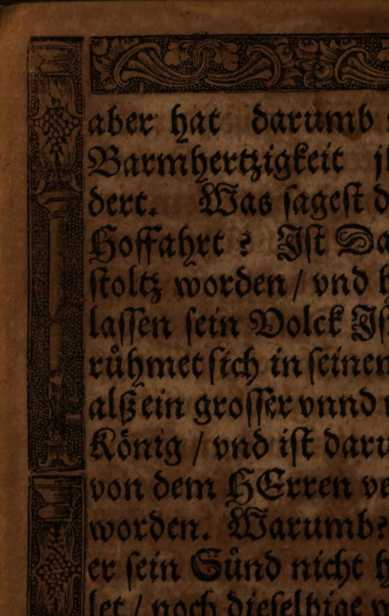 aber hat darumb
Barmhertzigkeit
dert. Was sagest
Hoffahrt? Ist
stoltz worden / vnd
lassen sein Volck
růhmet sich in seinen
alß ein grosser vnnd
König / vnd ist
von dem HErren
worden. Warumb?
er sein Sůnd nicht
let / noch dieselbige